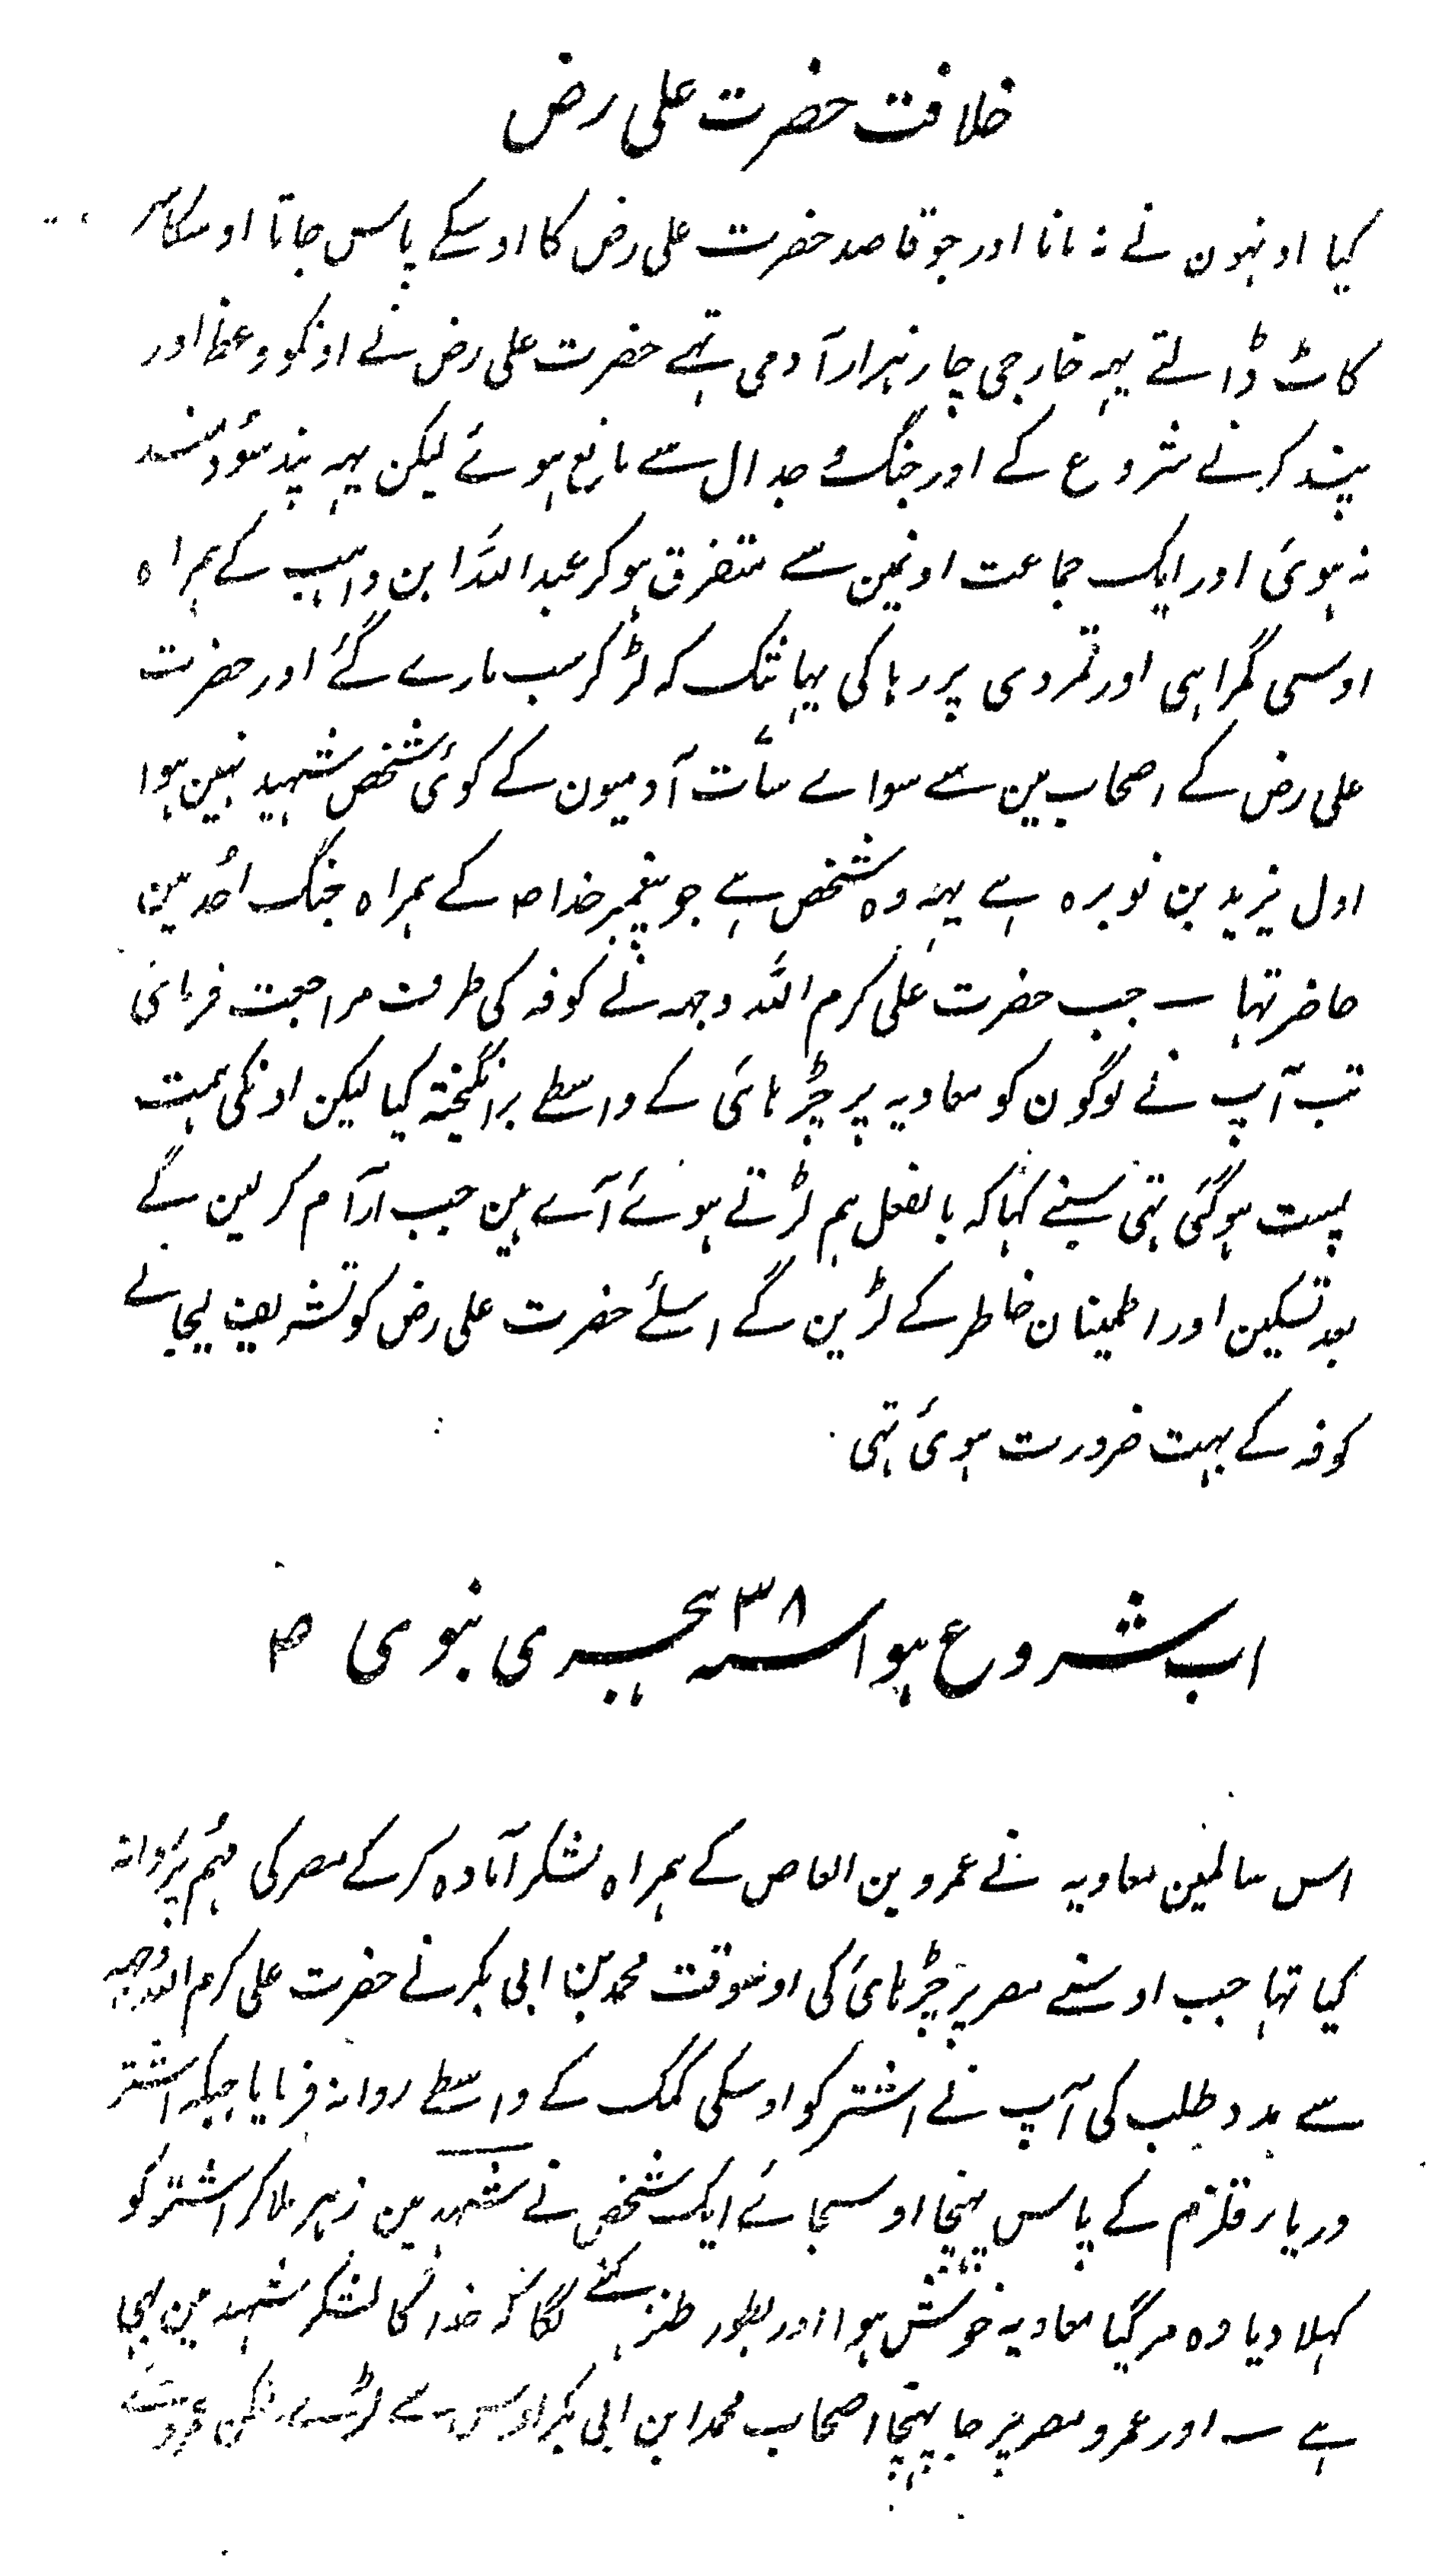 خلافت حضرت علی رض
کیا اونہون نے نہ مانا اور جو قاصد حضرت علی رض کا اوسکے پاس جاتا اوسکا سر
کاٹ ڈالتے یہہ خارجی چار ہزار آدمی تہے حضرت علی رض نے اونکو وعظ اور
پند کرنے شروع کے اور جنگ و جدال سے مانع ہوئے لیکن یہہ پند سودمند
نہ ہوئی اور ایک جماعت اونمین سے متفرق ہوکر عبد اللہ ابن واہب کے ہمراہ
اوسی گمراہی اور تمردی پر رہا کی یہانتک کہ لڑکر سب مارے گئے اور حضرت
علی رض کے اصحاب مین سے سواے سات آدمیون کے کوئی شخص شہید نہین ہوا
اول یزید بن نویرہ ہے یہہ وہ شخص ہے جو پیغمبر خدا ص کے ہمراہ جنگ اُحد مین
حاضر تہا ۔ جب حضرت علی کرم اللہ وجہہ نے کوفہ کی طرف مراجعت فرمائی
تب آپ نے لوگون کو معاویہ پر چڑہائی کے واسطے برانگیختہ کیا لیکن اونکی ہمت
پست ہوگئی تہی سبنے کہا کہ بالفعل ہم لڑتے ہوئے آے ہین جب آرام کر لین گے
بعد تسکین اور اطمینان خاطر کے لڑین گے اسلئے حضرت علی رض کو تشریف لیجانے
کوفہ کے بہت ضرورت ہوئی تہی
اب شروع ہوا سنہ ۳۸ ہجری نبوی ص
اس سالمین معاویہ نے عمرو بن العاص کے ہمراہ لشکر آمادہ کر کے مصر کی مہم پر روانہ
کیا تہا جب اوسنے مصر پر چڑہائی کی اوسوقت محمد بن ابی بکر نے حضرت علی کرم اللہ وجہہ
سے مدد طلب کی آپ نے اشتر کو اوسکی کمک کے واسطے روانہ فرمایا جبکہ اشتر
دریاے قلزم کے پاس پہنچا اوسجائے ایک شخص نے شہد مین زہر ملا کر اشتر کو
کہلا دیا وہ مر گیا معاویہ خوش ہوا اور بطور طنز کہنے لگا کہ خدا کا لشکر شہد مین بہی
ہے ۔ اور عمرو مصر پر جا پہنچا اصحاب محمد ابن ابی بکر اوس سے لڑے لیکن عمرو نے